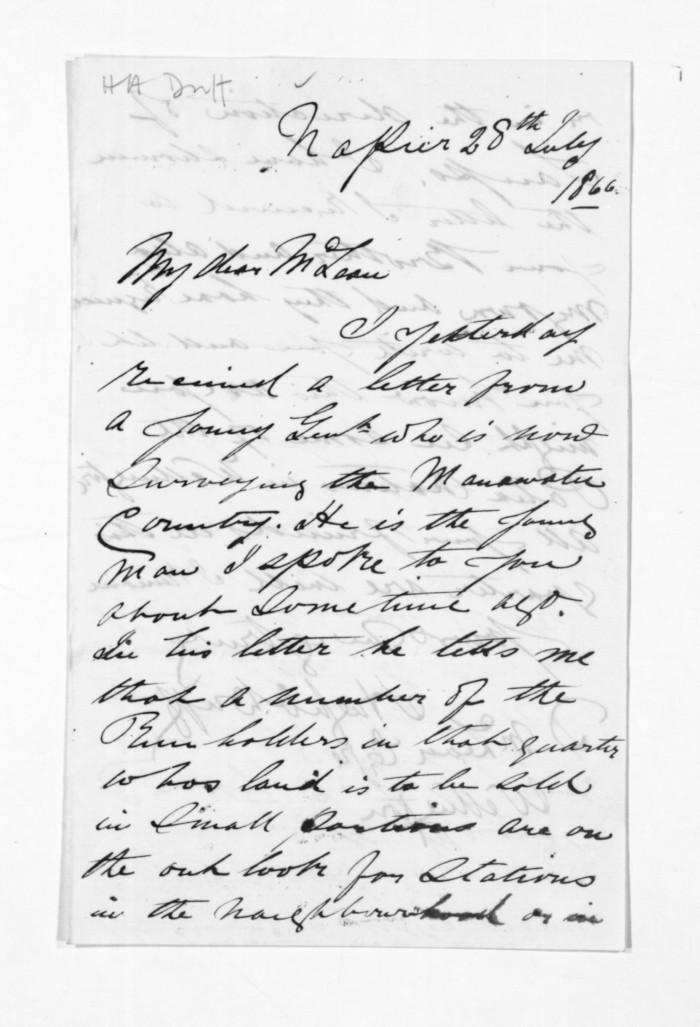 HA Duff
Napier 28th July
1866.
My dear McLean
I yesterday
received a letter from
a young Gentn who is now
Surveying the Manawatu
Country. He is the young
man I spoke to you
about sometime ago.
In his letter he tells me
that a number of the
Run holders in that quarter
whos land is to be sold
in Small portions are on
the out look for Stations
in the neighbourhood or in